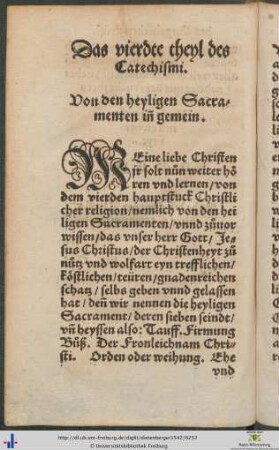 Das vierdte theyl des
Catechismi.
Von den heyligen Sacra-
menten iñ gemein.
MEine liebe Christen
jr solt nůn weiter hö
ren vnd lernen/von
dem vierden hauptstuck Christli
cher religion/nemlich von den hei
ligen Sacramenten/vnnd zůuor
wissen/das vnser herr Gott/Je-
sus Christus/der Christenheyt zů
nutz vnd wolfart eyn trefflichen/
köstlichen/teüren/gnadenreichen
schatz/selbs geben vnnd gelassen
hat/deñ wir nennen die heyligen
Sacrament/deren sieben seindt/
vñ heyssen also: Tauff. Firmung
Büß. Der Fronleichnam Chri-
sti. Orden oder weihung. Ehe
vnd
http://dl.ub.uni-freiburg.de/diglit/dietenberger1542/0252
© Universitätsbibliothek Freiburg
Baden-Württemberg